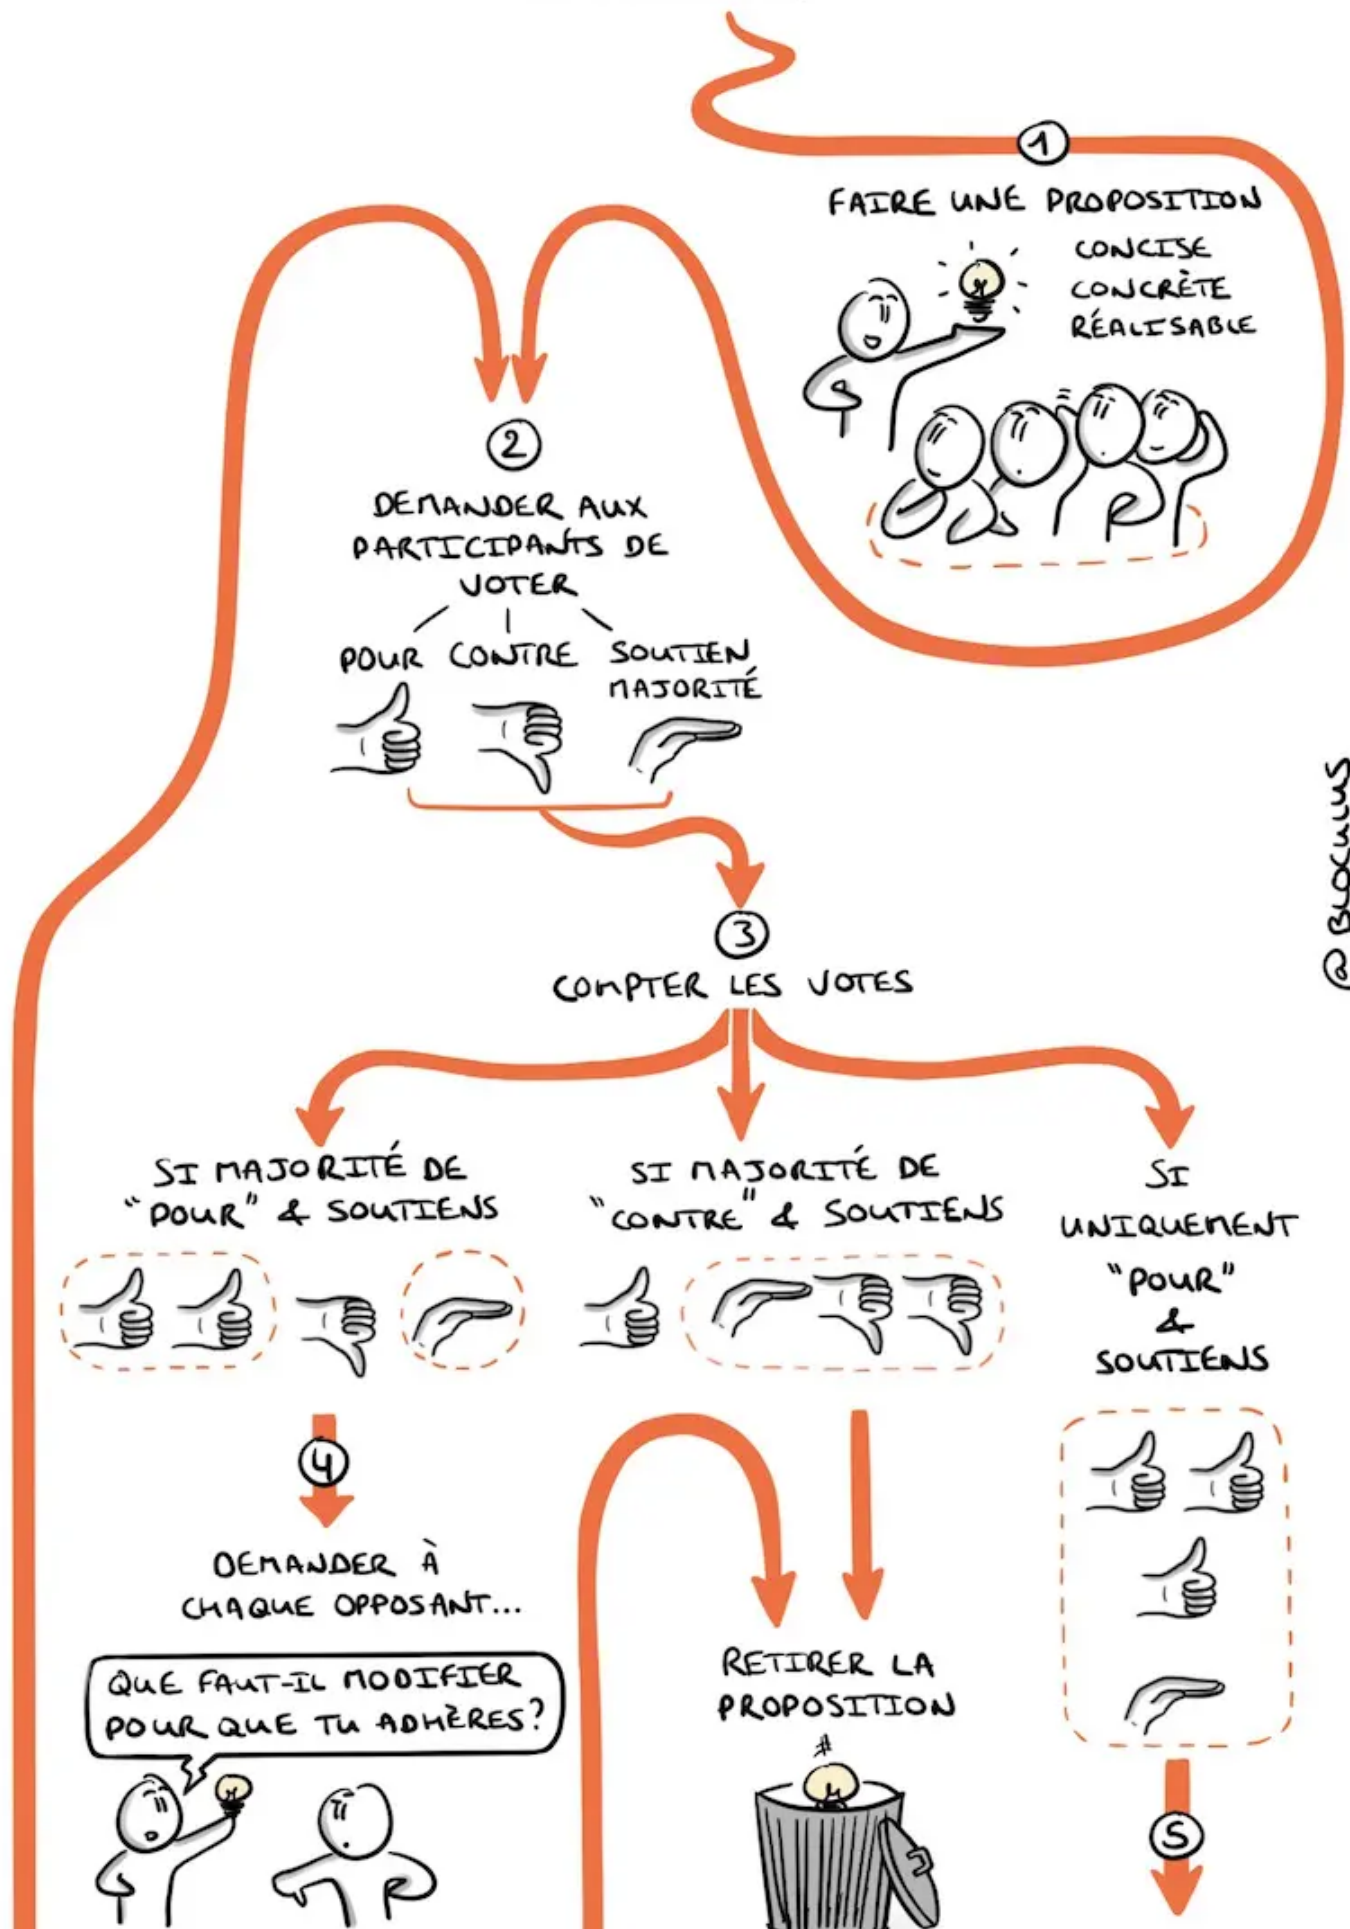 1
FAIRE UNE PROPOSITION
CONCISE
CONCRÈTE
RÉALISABLE
2
DEMANDER AUX
PARTICIPANTS DE
VOTER
POUR CONTRE SOUTIEN
MAJORITÉ
@BLOCULUS
3
COMPTER LES VOTES
SI MAJORITÉ DE
"POUR" & SOUTIENS
SI MAJORITÉ DE
"CONTRE" & SOUTIENS
SI
UNIQUEMENT
"POUR"
&
SOUTIENS
4
DEMANDER À
CHAQUE OPPOSANT...
QUE FAUT-IL MODIFIER
POUR QUE TU ADHÈRES?
RETIRER LA
PROPOSITION
5